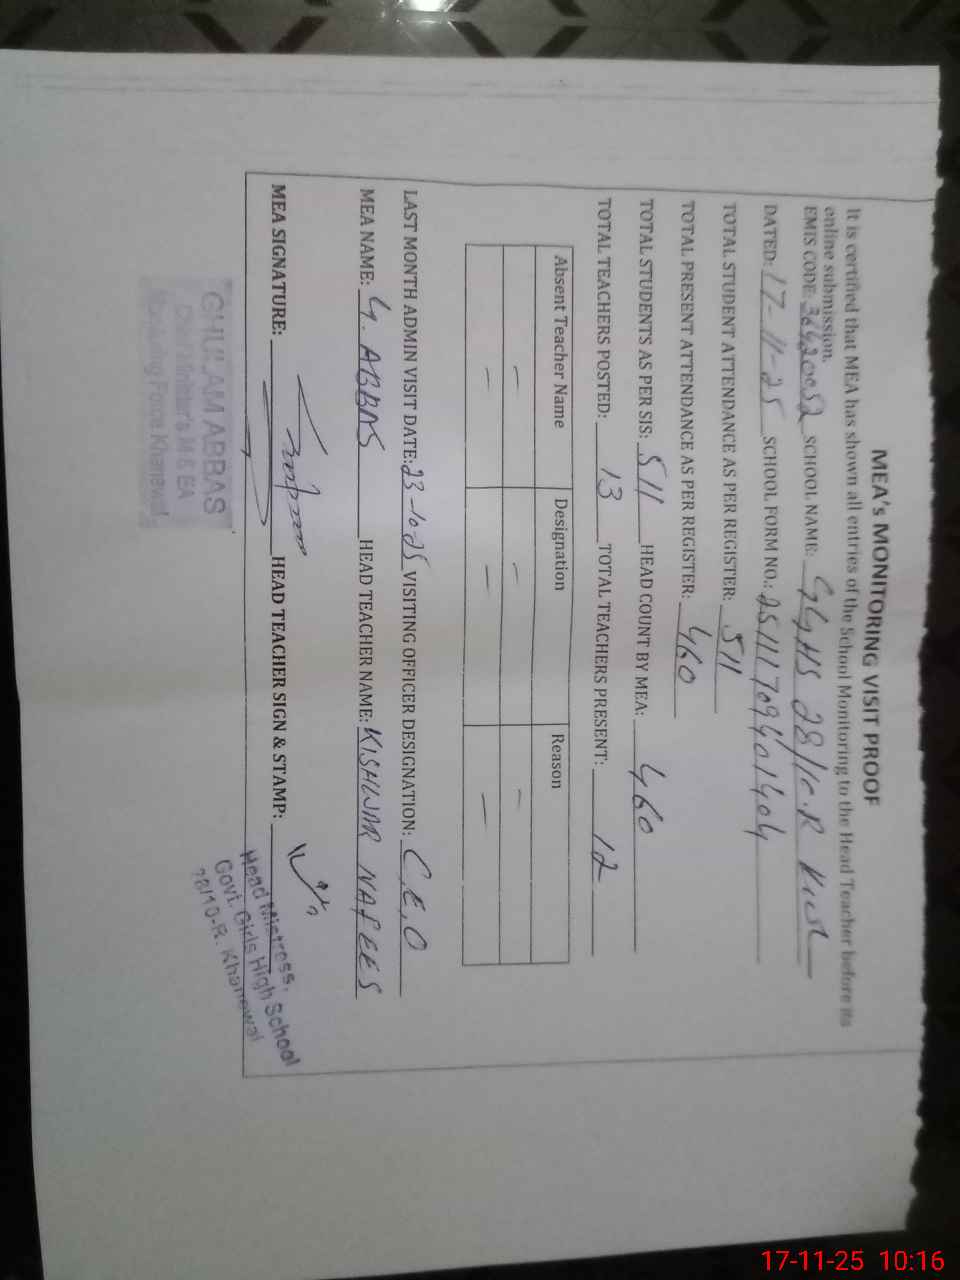 MEA's MONITORING VISIT PROOF
It is certified that MEA has shown all entries of the School Monitoring to the Head Teacher before its
online submission.
EMIS CODE: 36420052 SCHOOL NAME: GGHS 28/10.R
DATED: 17-11-25 SCHOOL FORM NO.:
TOTAL STUDENT ATTENDANCE AS PER REGISTER: 511
TOTAL PRESENT ATTENDANCE AS PER REGISTER: 460
TOTAL STUDENTS AS PER SIS: 511 HEAD COUNT BY MEA: 460
TOTAL TEACHERS POSTED: 13 TOTAL TEACHERS PRESENT: 12
Absent Teacher Name Designation Reason
— — —
— — —
LAST MONTH ADMIN VISIT DATE: 23-10-25 VISITING OFFICER DESIGNATION: C.E.O
MEA NAME: G. ABBAS HEAD TEACHER NAME: KISHWAR NAFEES
MEA SIGNATURE: HEAD TEACHER SIGN & STAMP:
GHULAM ABBAS
Chief Minister's M & EA
Monitoring Force Khanewal
Head Mistress,
Govt. Girls High School
28/10-R. Khanewal
17-11-25 10:16